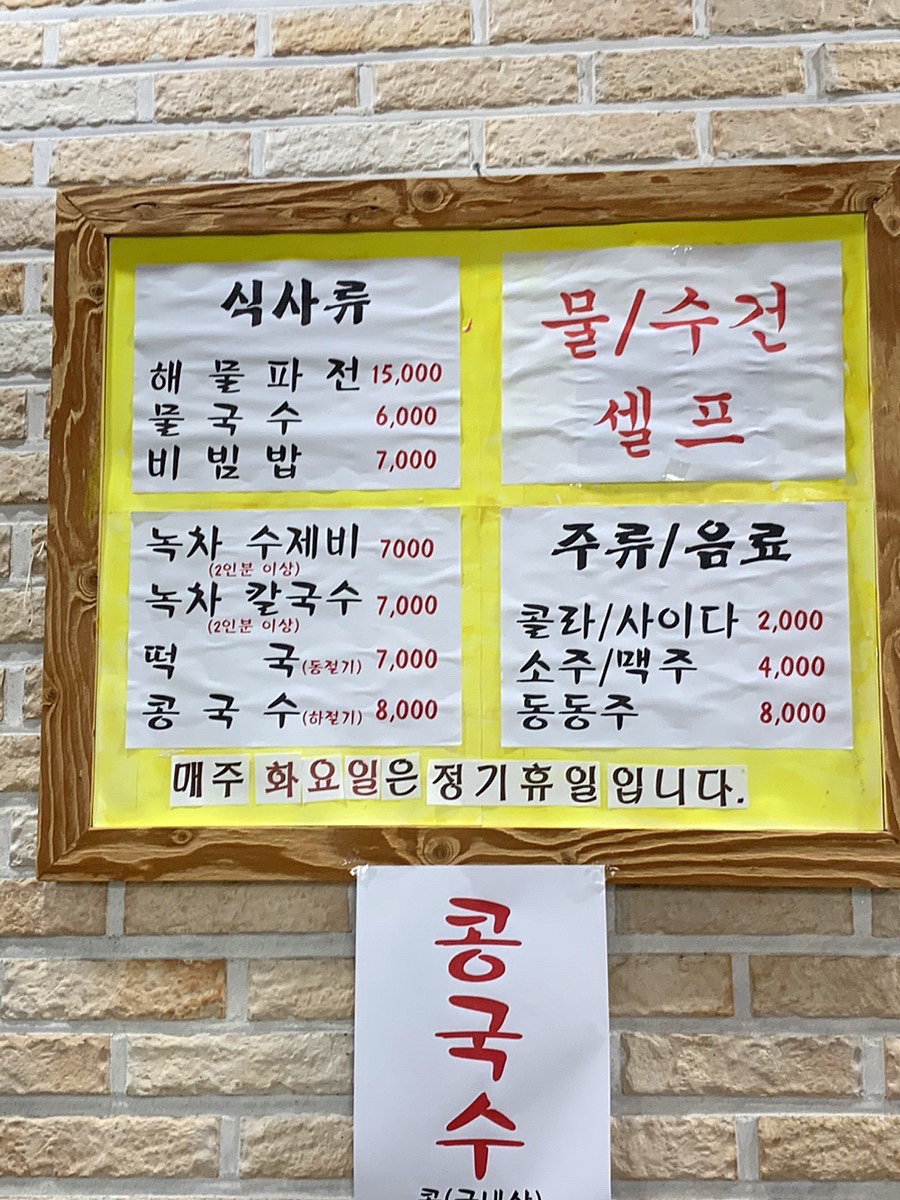 식사류
해물파전 15,000
물국수 6,000
비빔밥 7,000
물/수건
셀프
녹차 수제비 7000
(2인분 이상)
녹차 칼국수 7,000
(2인분 이상)
떡국(동절기) 7,000
콩국수(하절기) 8,000
주류/음료
콜라/사이다 2,000
소주/맥주 4,000
동동주 8,000
매주 화요일은 정기휴일입니다.
콩
국
수
콩(국내산)